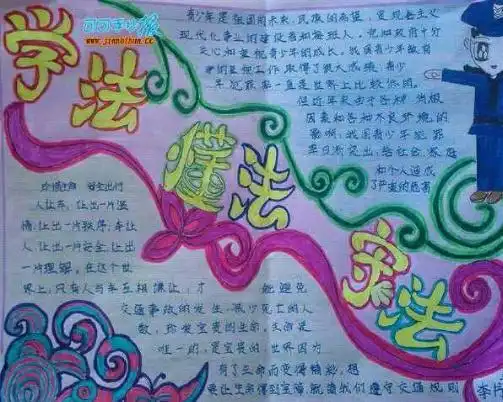 学法
懂法
守法
青少年是祖国的未来,民族的希望,是现代化
事业的建设者和接班人。党和政府十分
关心和重视青少年的成长。我国青少年教育
工作取得了很大成绩,青少
年犯罪率一直是世界上比较低的。
但近年来由于各种消极
因素和各种不良环境的
影响,我国青少年犯罪
率日渐突出,给社会、家庭
和个人造成
了严重的危害
珍惜生命 安全出行
人让车,让出一片温
情;让出一片秩序;车让
人,让出一片安全,让出
一片理解。在这个世
界上,只有人与车互相谦让,才 能避免
交通事故的发生,减少死亡的人
数,珍爱宝贵的生命,生命是
唯一的,是宝贵的,世界因为
有了生命而变得精彩,想
要让生命得到宝障,就请我们遵守交通规则
李
可可手抄报